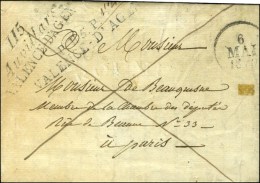 115
VALENCE D'AGEN
VALENCE D'AGEN
6
MAI
Monsieur
Monsieur De Beauquesne
Membre de la Chambre des députés
Rue de Beaune N° 33
à paris